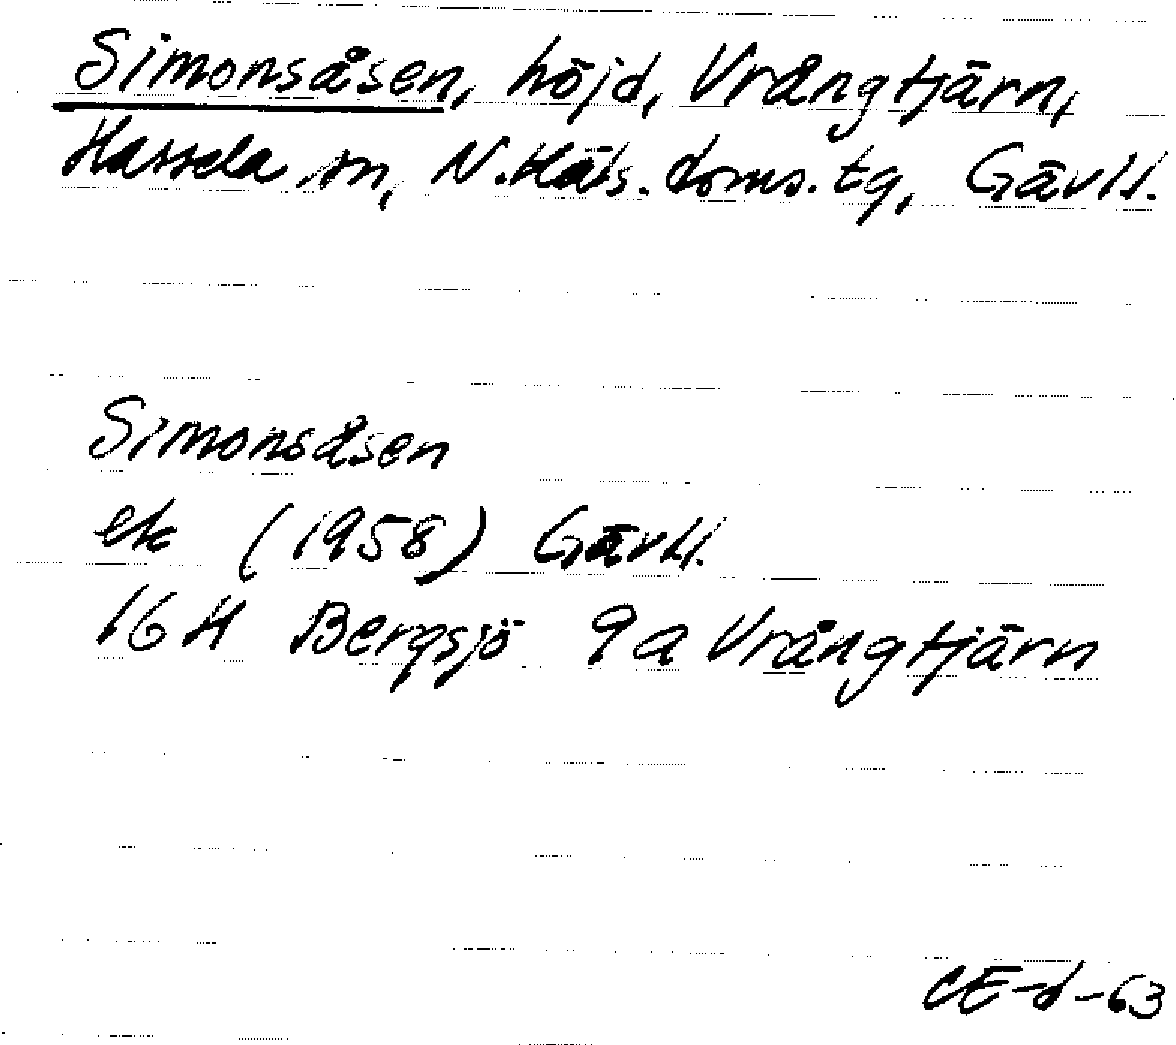 Simonsåsen, höjd, Vrångtjärn,
Hassela sn, N. Häls. doms. tg, Gävl l.
Simonsåsen
ek (1958) Gävl l.
16 H Bergsjö 9a Vrångtjärn
CE-d-63